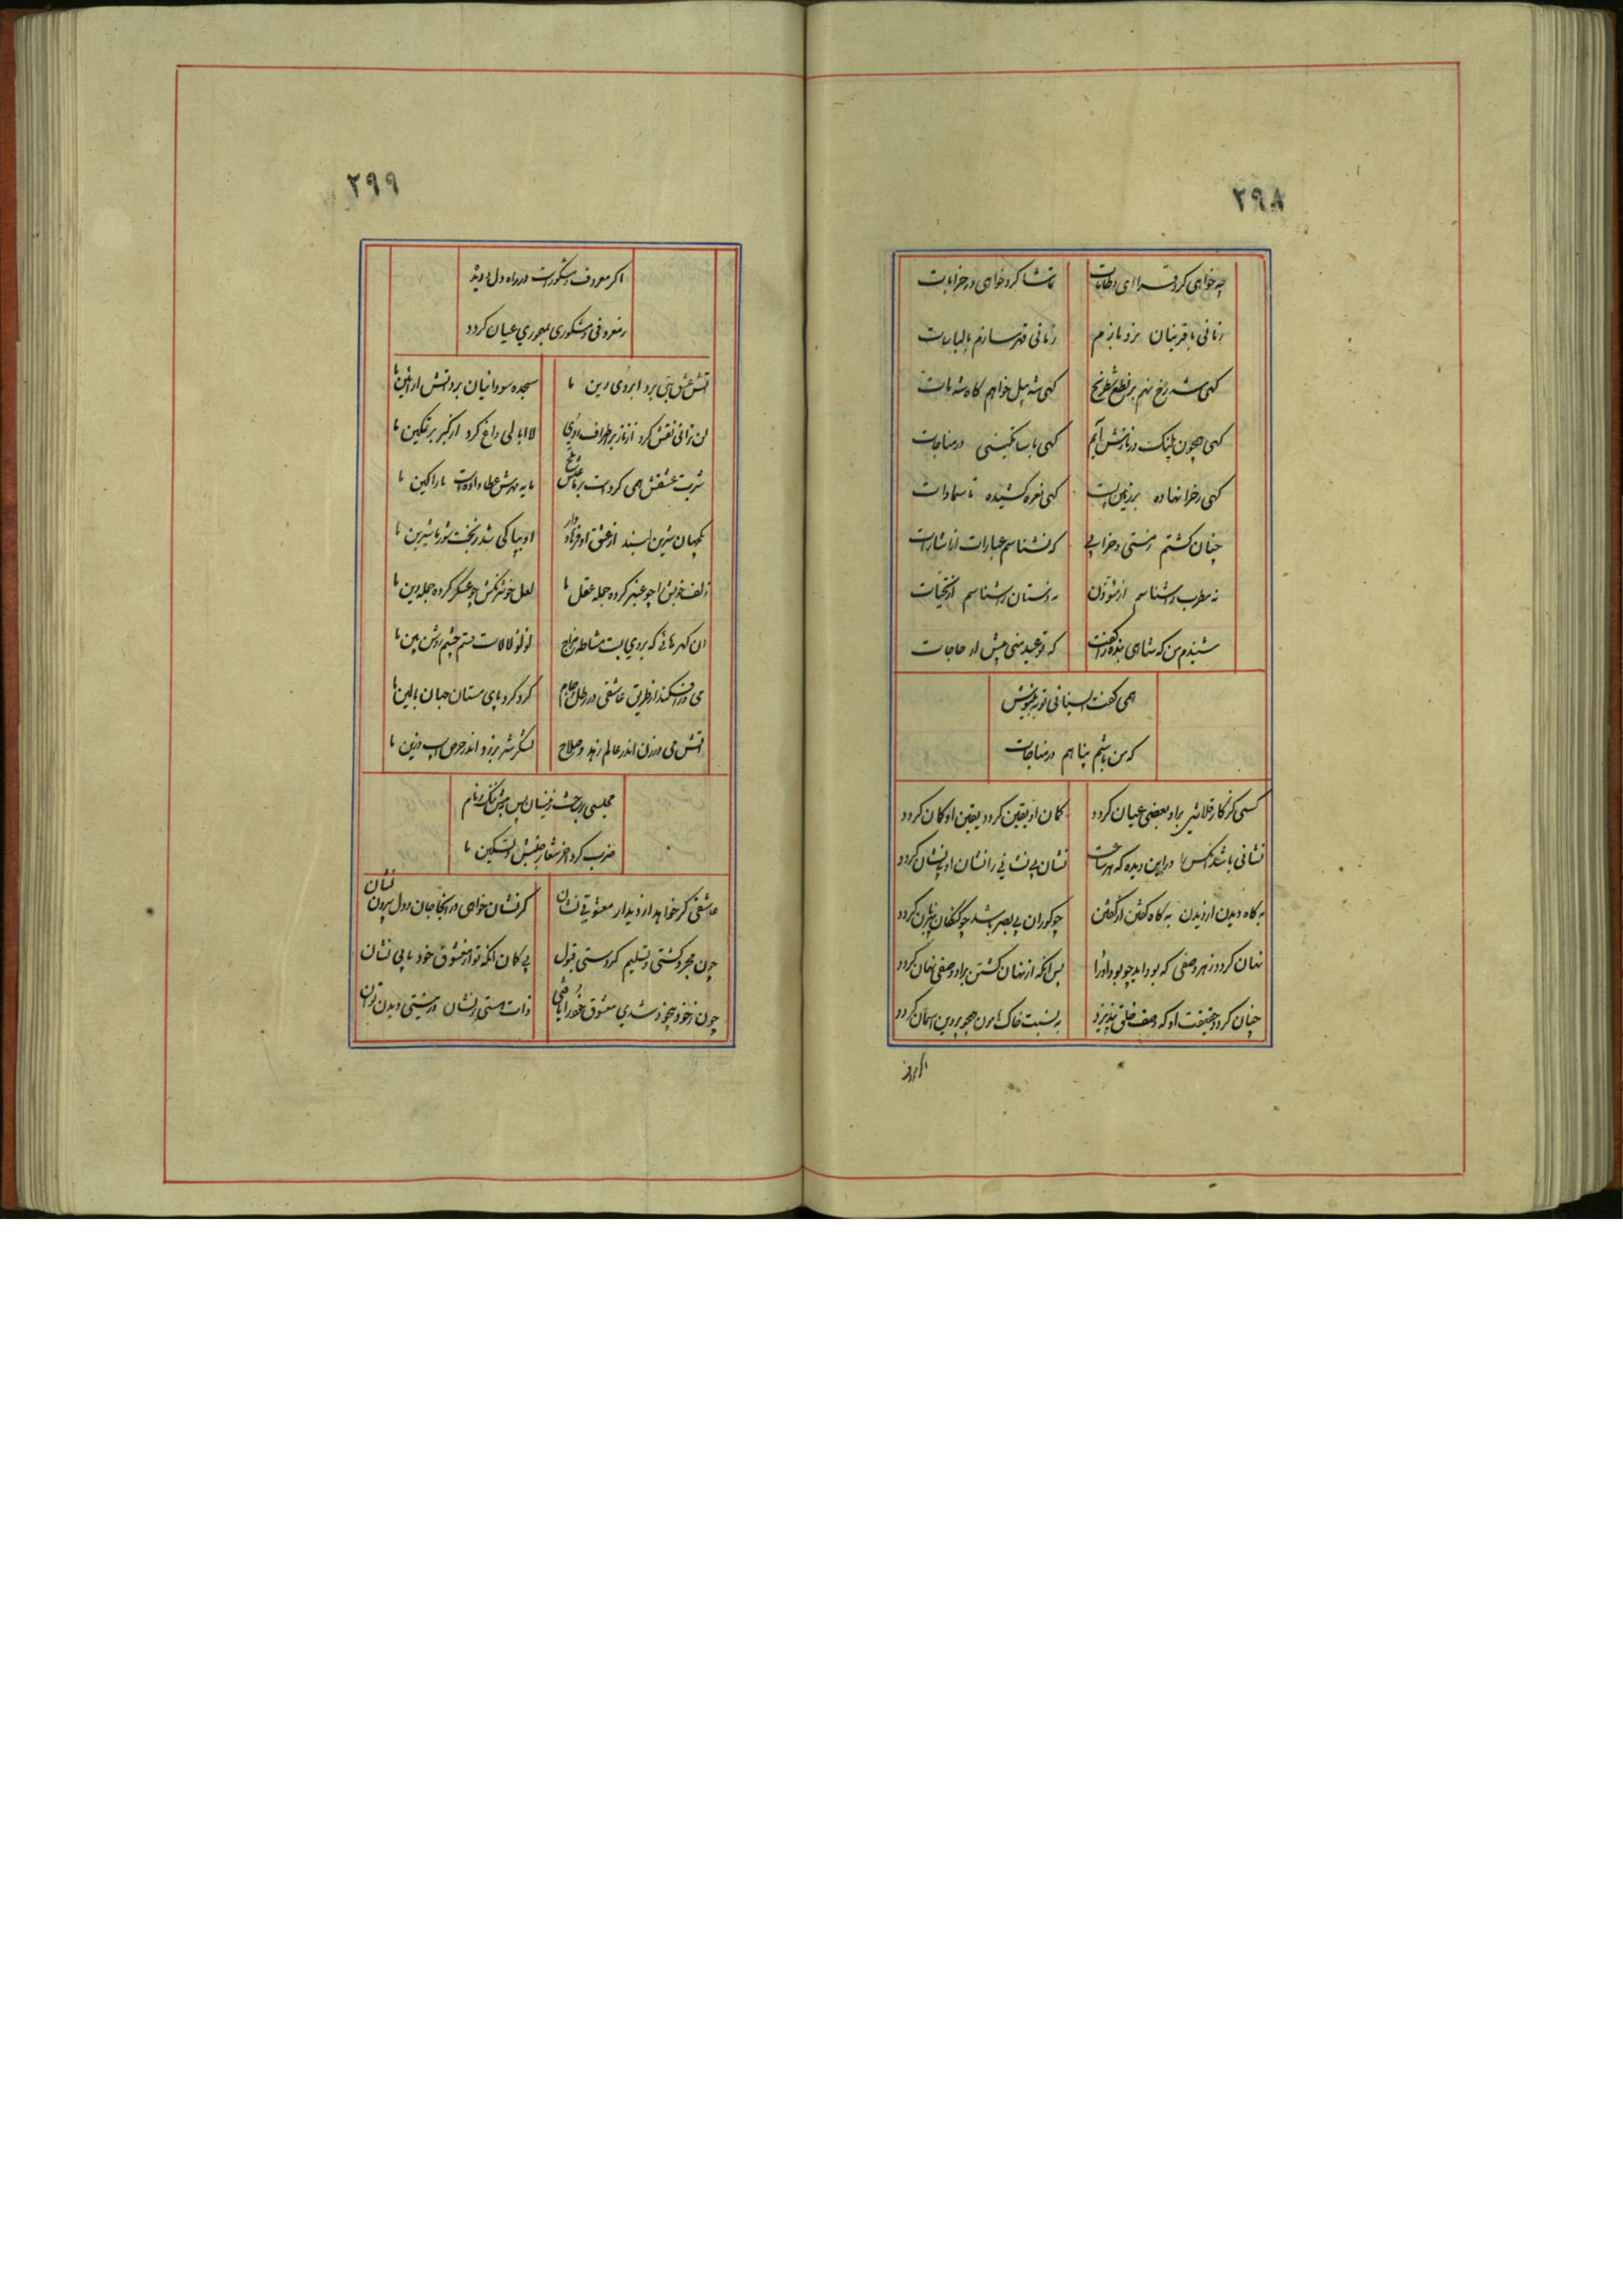 ۲۹۸
چه خواهی کرد قرائی و طامات تماشا کرد خواهی در خرابات
زمانی با قرینان نرد بازم زمانی قمر سازم بالباسات
کهی شه رخ نهم بر نطع شطرنج کهی شه پیل خواهم کاه شه مات
کهی همچون پلنک در نازش آیم کهی باب نکینی در مناجات
کهی رخرا نهاده بر زمین پست کهی نعره کشیده تا سماوات
چنان کشتم زمستی و خرابی که نشناسم عبارات از اشارات
نه مطرب را شناسم از مؤذن نه دستان را شناسم از تحیات
شنیدم من که شاهی بنده را کفت که تو عبد منی پیش ار حاجات
همی کفت ای سنائی توبه بنیوش
که من باشم پناهم در مناجات
کسی کز کار قلاشی براو بعضی عیان کردد کمان او یقین کردد یقین او کمان کردد
نشانی باشد آنکس را در این دیده که هر ساعت نشان بی نشانی را نشان او بی نشان کردد
به کاه دیدن از دیدن به کاه کفتن از کفتن چو کوران بی بصر باشد چو کنکان بی زبان کردد
نهان کردد ز هر وصفی که بود اید چو بود او را پس انکه از نهان کشتن براو وصفی نهان کردد
چنان کردد حقیقت او که وصف خلق نپذیرد به نسبت خاک هامون همچو پروین آسمان کردد
اکر معروف
۲۹۹
اکر معروف و مشکورست در راه دل و دیده
ز معروفی و مشکوری مهجوری عیان کردد
آتش عشق بتی برد ابروی دین ما سجده سودائیان برداشتش از آئین ما
لن ترانی نقش کرد از ناز بر اطراف روی لاابالی داغ کرد از کبر بر تمکین ما
شربت عشقش همی کردست بر ما عیش تلخ مایه مهرش عطا داده است ما را کین ما
کیهان شیرین پسند از عشق او فرهادوار او بیاکی شد ز نخبت شور ما شیرین ما
زلف خویش را چو عنبر کرده جمله عقل ما لعل خوشرنکش چو عسکر کرده جمله دین ما
ان کهرهائی که بر وی بست مشاطه مزاج لؤلؤ لالاست دستم چشم روشن بین ما
می در افکند از طریق عاشقی در رطل و جام کرد کرد پای مستان جهان بالین ما
آتش می درزن اندر عالم زهد و صلاح لشکر شر برزد اندر حرص اسب و زین ما
مجلسی بر بحث زینسان پس حریفی نکته نام
ضرب کرد اخر شعار جنبش و تسکین ما
عاشقی کر خواهد از دیدار معشوقی نشان کر نشان خواهی در انجا جان و دل بیرون نشان
چون مجرد کشتی و تسلیم کردستی قبول بی کمان انکه تو از معشوق خود یابی نشان
چون ز خود بیخود شدی معشوق خود را یافتی ذات هستی نشان در نیستی دیدن توان